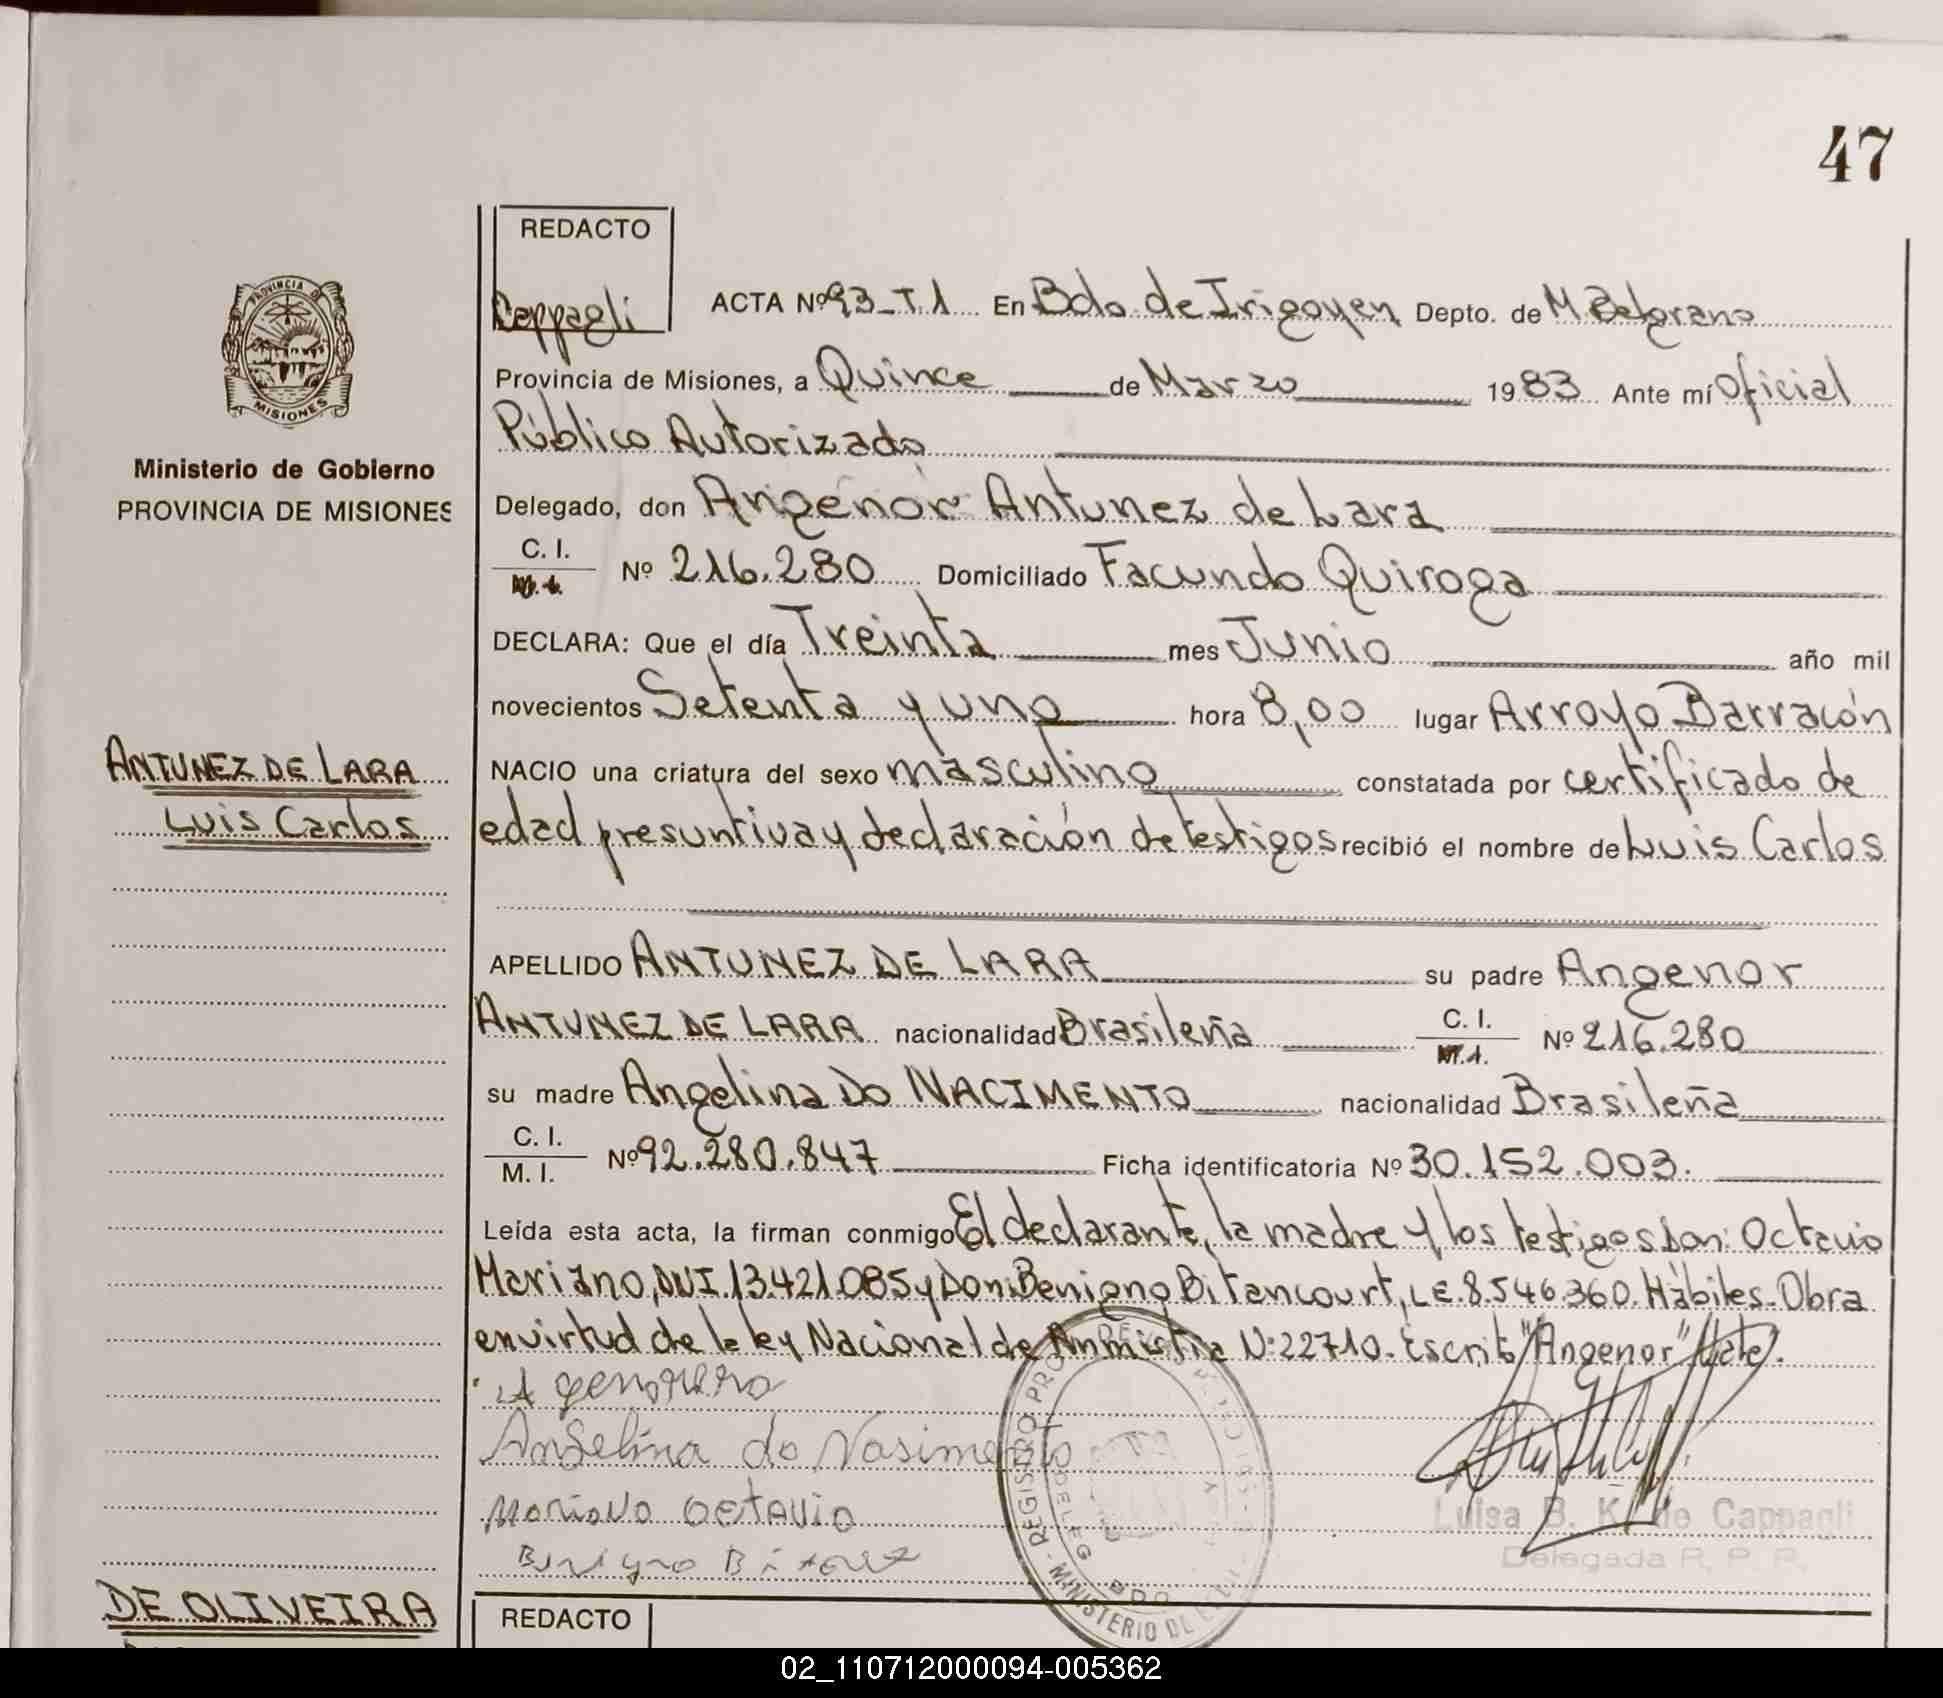 47
REDACTO
Cappagli
ACTA Nº 93-T.1 En Bdo de Irigoyen Depto. de M Belgrano
PROVINCIA DE
MISIONES
Provincia de Misiones, a Quince de Marzo 1983 Ante mí Oficial
Público Autorizado
Ministerio de Gobierno
PROVINCIA DE MISIONES
Delegado, don Angenor Antunez de Lara
C. I.
Nº 216.280 Domiciliado Facundo Quiroga
M. I.
DECLARA: Que el día Treinta mes Junio año mil
novecientos Setenta y uno hora 8,00 lugar Arroyo Barracón
ANTUNEZ DE LARA
Luis Carlos
NACIO una criatura del sexo masculino constatada por certificado de
edad presuntiva y declaración de testigos recibió el nombre de Luis Carlos
APELLIDO ANTUNEZ DE LARA su padre Angenor
ANTUNEZ DE LARA nacionalidad Brasileña C. I. Nº 216.280
M. I.
su madre Angelina Do NACIMENTO nacionalidad Brasileña
C. I.
M. I. Nº 92.280.847 Ficha identificatoria Nº 30.152.003.
Leída esta acta, la firman conmigo El declarante, la madre y los testigos Don: Octavio
Mariano, DNI. 13.421.085 y Don: Benigno Bitancourt, L.E. 8.546.360. Hábiles. Obra
en virtud de la ley Nacional de Amnistia Nº 22710. Escrito "Angenor" Vale.
Angelina do Nasimento
Mariano Octavio
REGISTRO PRO
MINISTERIO DE
DELEG
BDO
Luisa B. K. de Cappagli
Delegada R. P. P.
DE OLIVEIRA
REDACTO
02_110712000094-005362